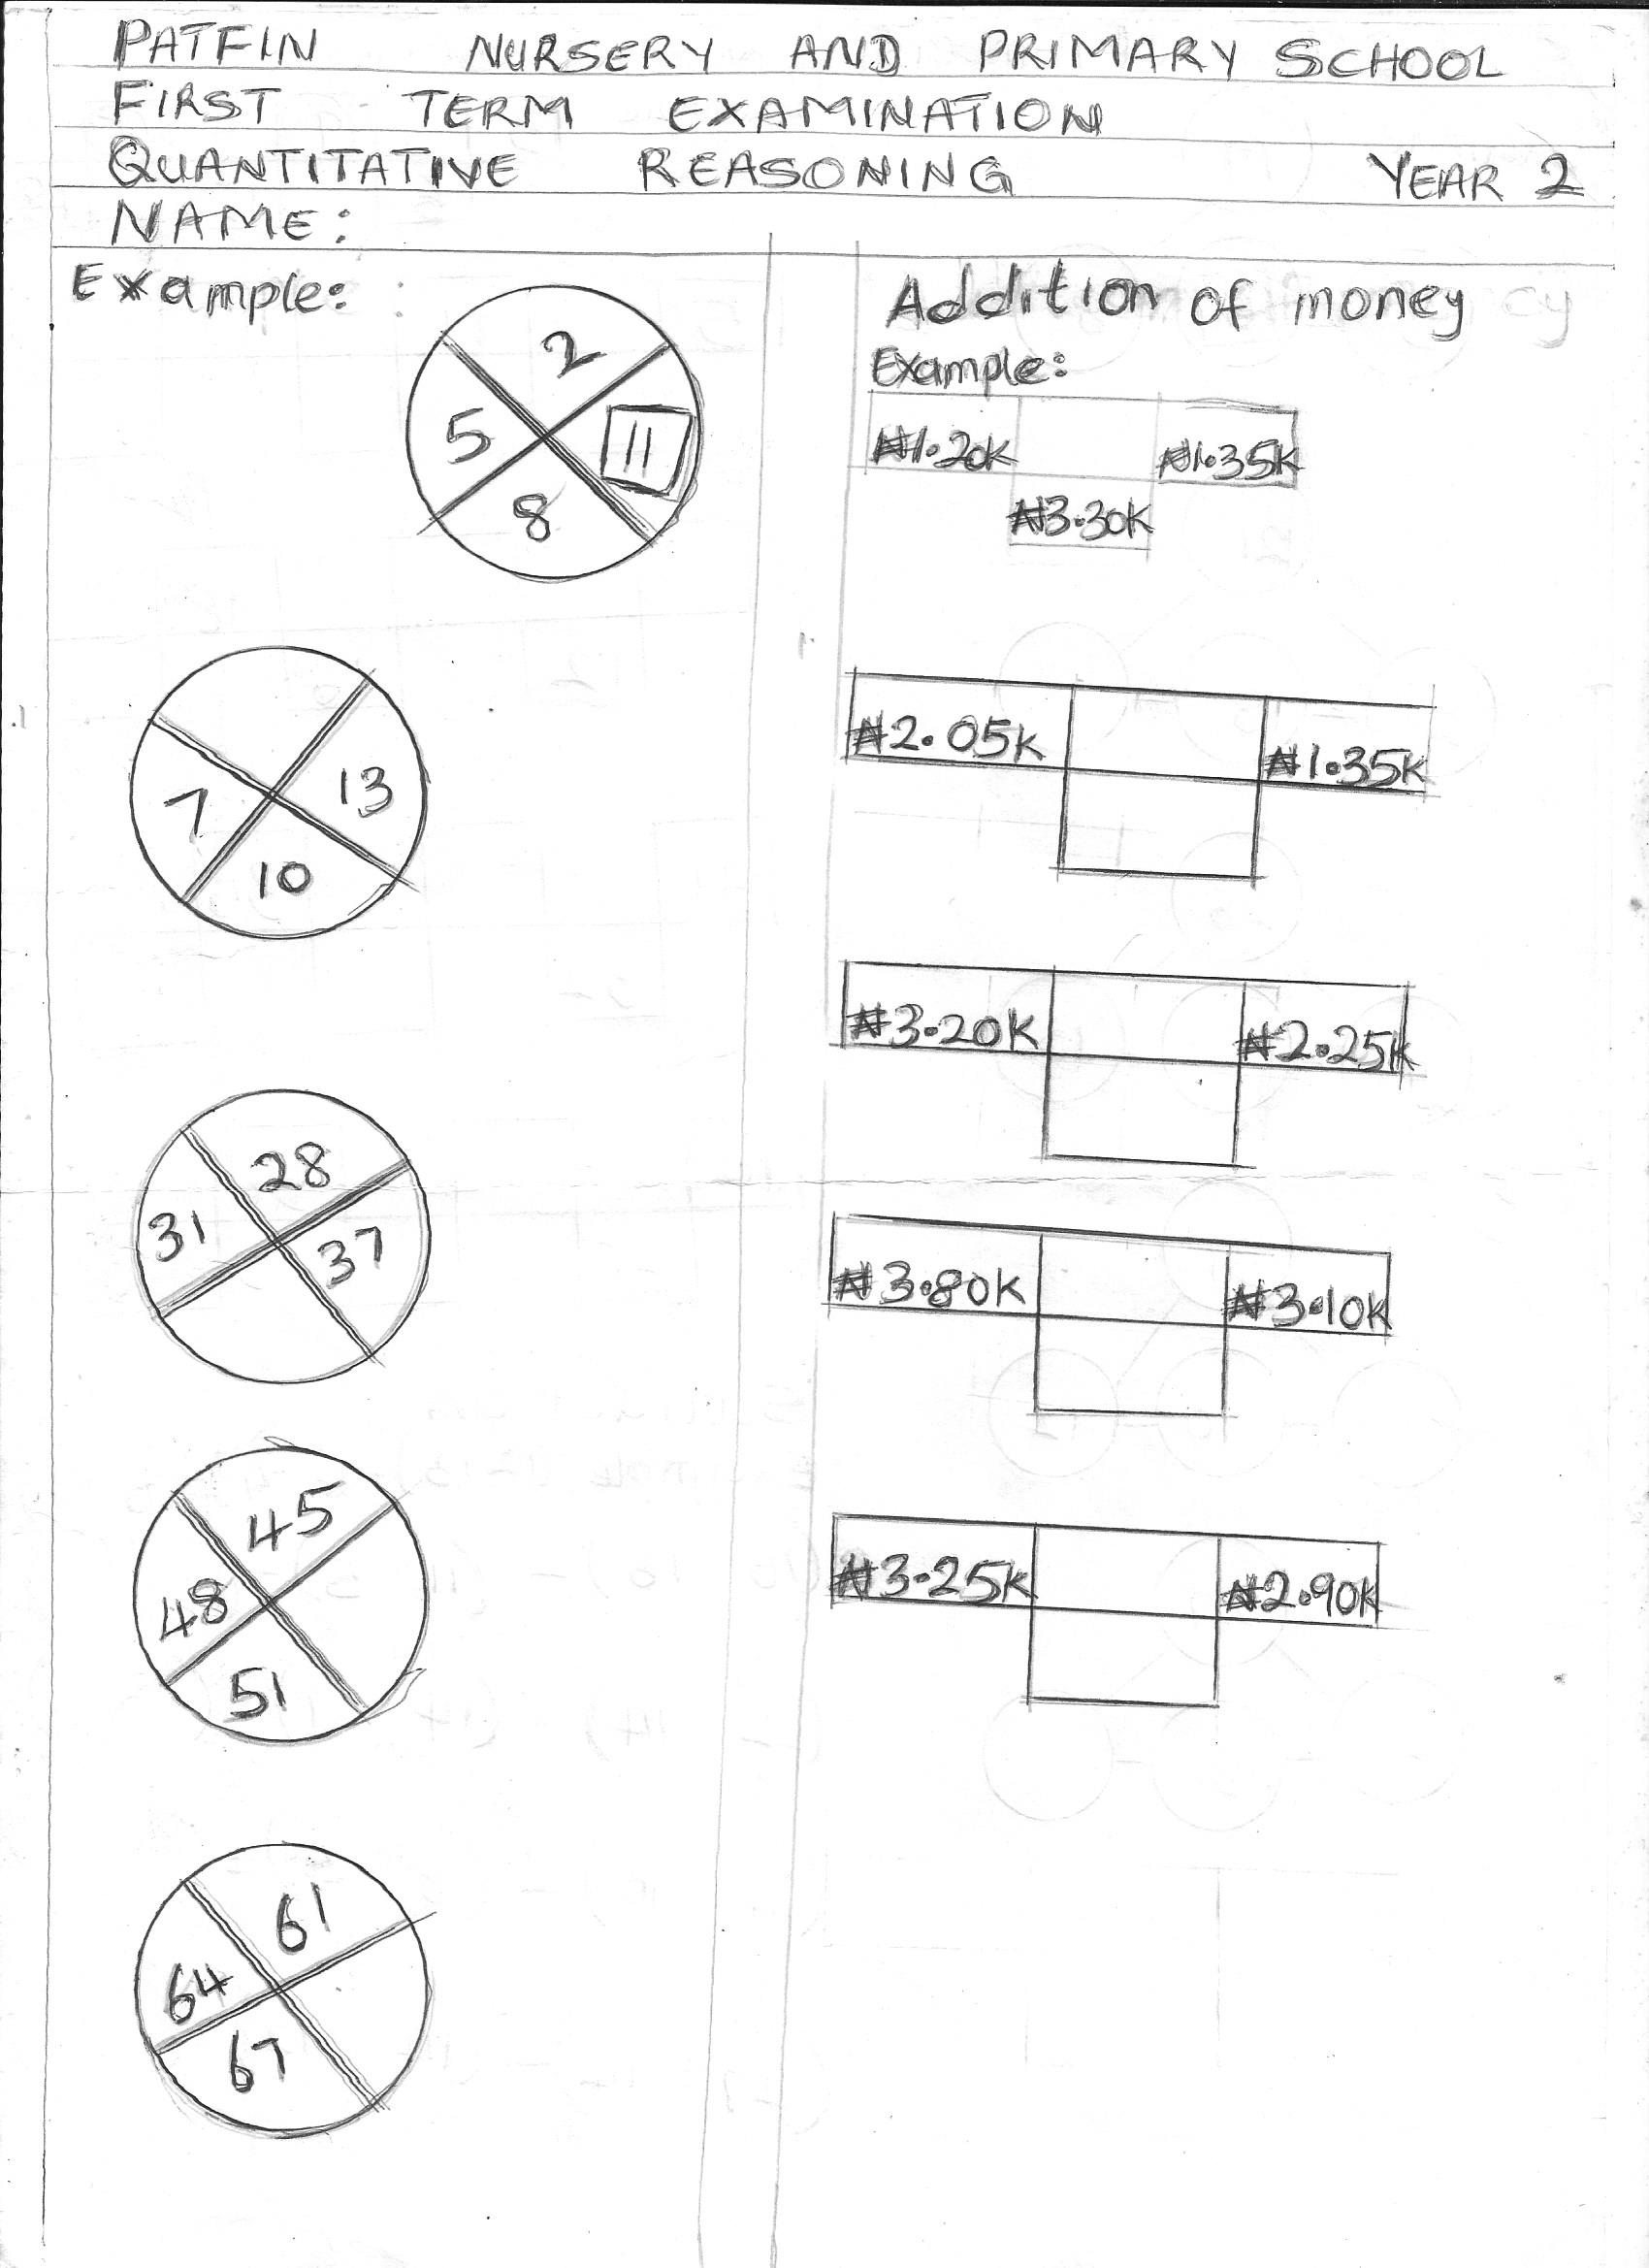 PATFIN NURSERY AND PRIMARY SCHOOL
FIRST TERM EXAMINATION
QUANTITATIVE REASONING YEAR 2
NAME:
Example:
2
5
11
8
7
13
10
28
31
37
45
48
51
61
64
67
Addition of money
Example:
₦1.20K ₦1.35K
₦3.30K
₦2.05K ₦1.35K
₦3.20K ₦2.25K
₦3.80K ₦3.10K
₦3.25K ₦2.90K